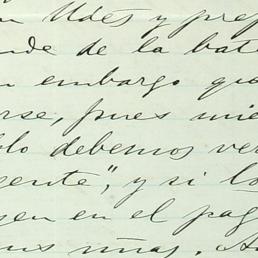 Udes y prep
de de la bat
embargo que
rse, pues mie
lo debemos ver
ente", y si lo
gen en el pag
sus uñas.